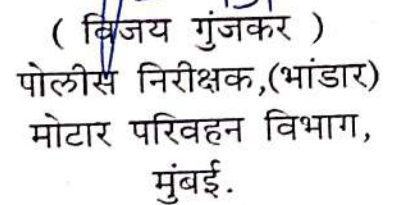 ( विजय गुंजकर )
पोलीस निरीक्षक,(भांडार)
मोटार परिवहन विभाग,
मुंबई.